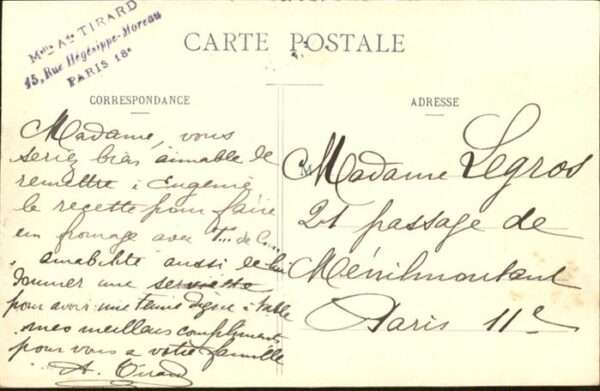 Mme Aé TIRARD
15, Rue Hégésippe-Moreau
PARIS 18e
CARTE POSTALE
CORRESPONDANCE
ADRESSE
Madame, vous
seriez bien aimable de
remettre à Eugenie
la recette pour faire
un fromage avec T... de C...
amabilité aussi de lui
donner une serviette
pour avoir une tenue digne à table
mes meilleurs compliments
pour vous & votre famille
A. Tirard
Madame Legros
21 passage de
Ménilmontant
Paris 11e